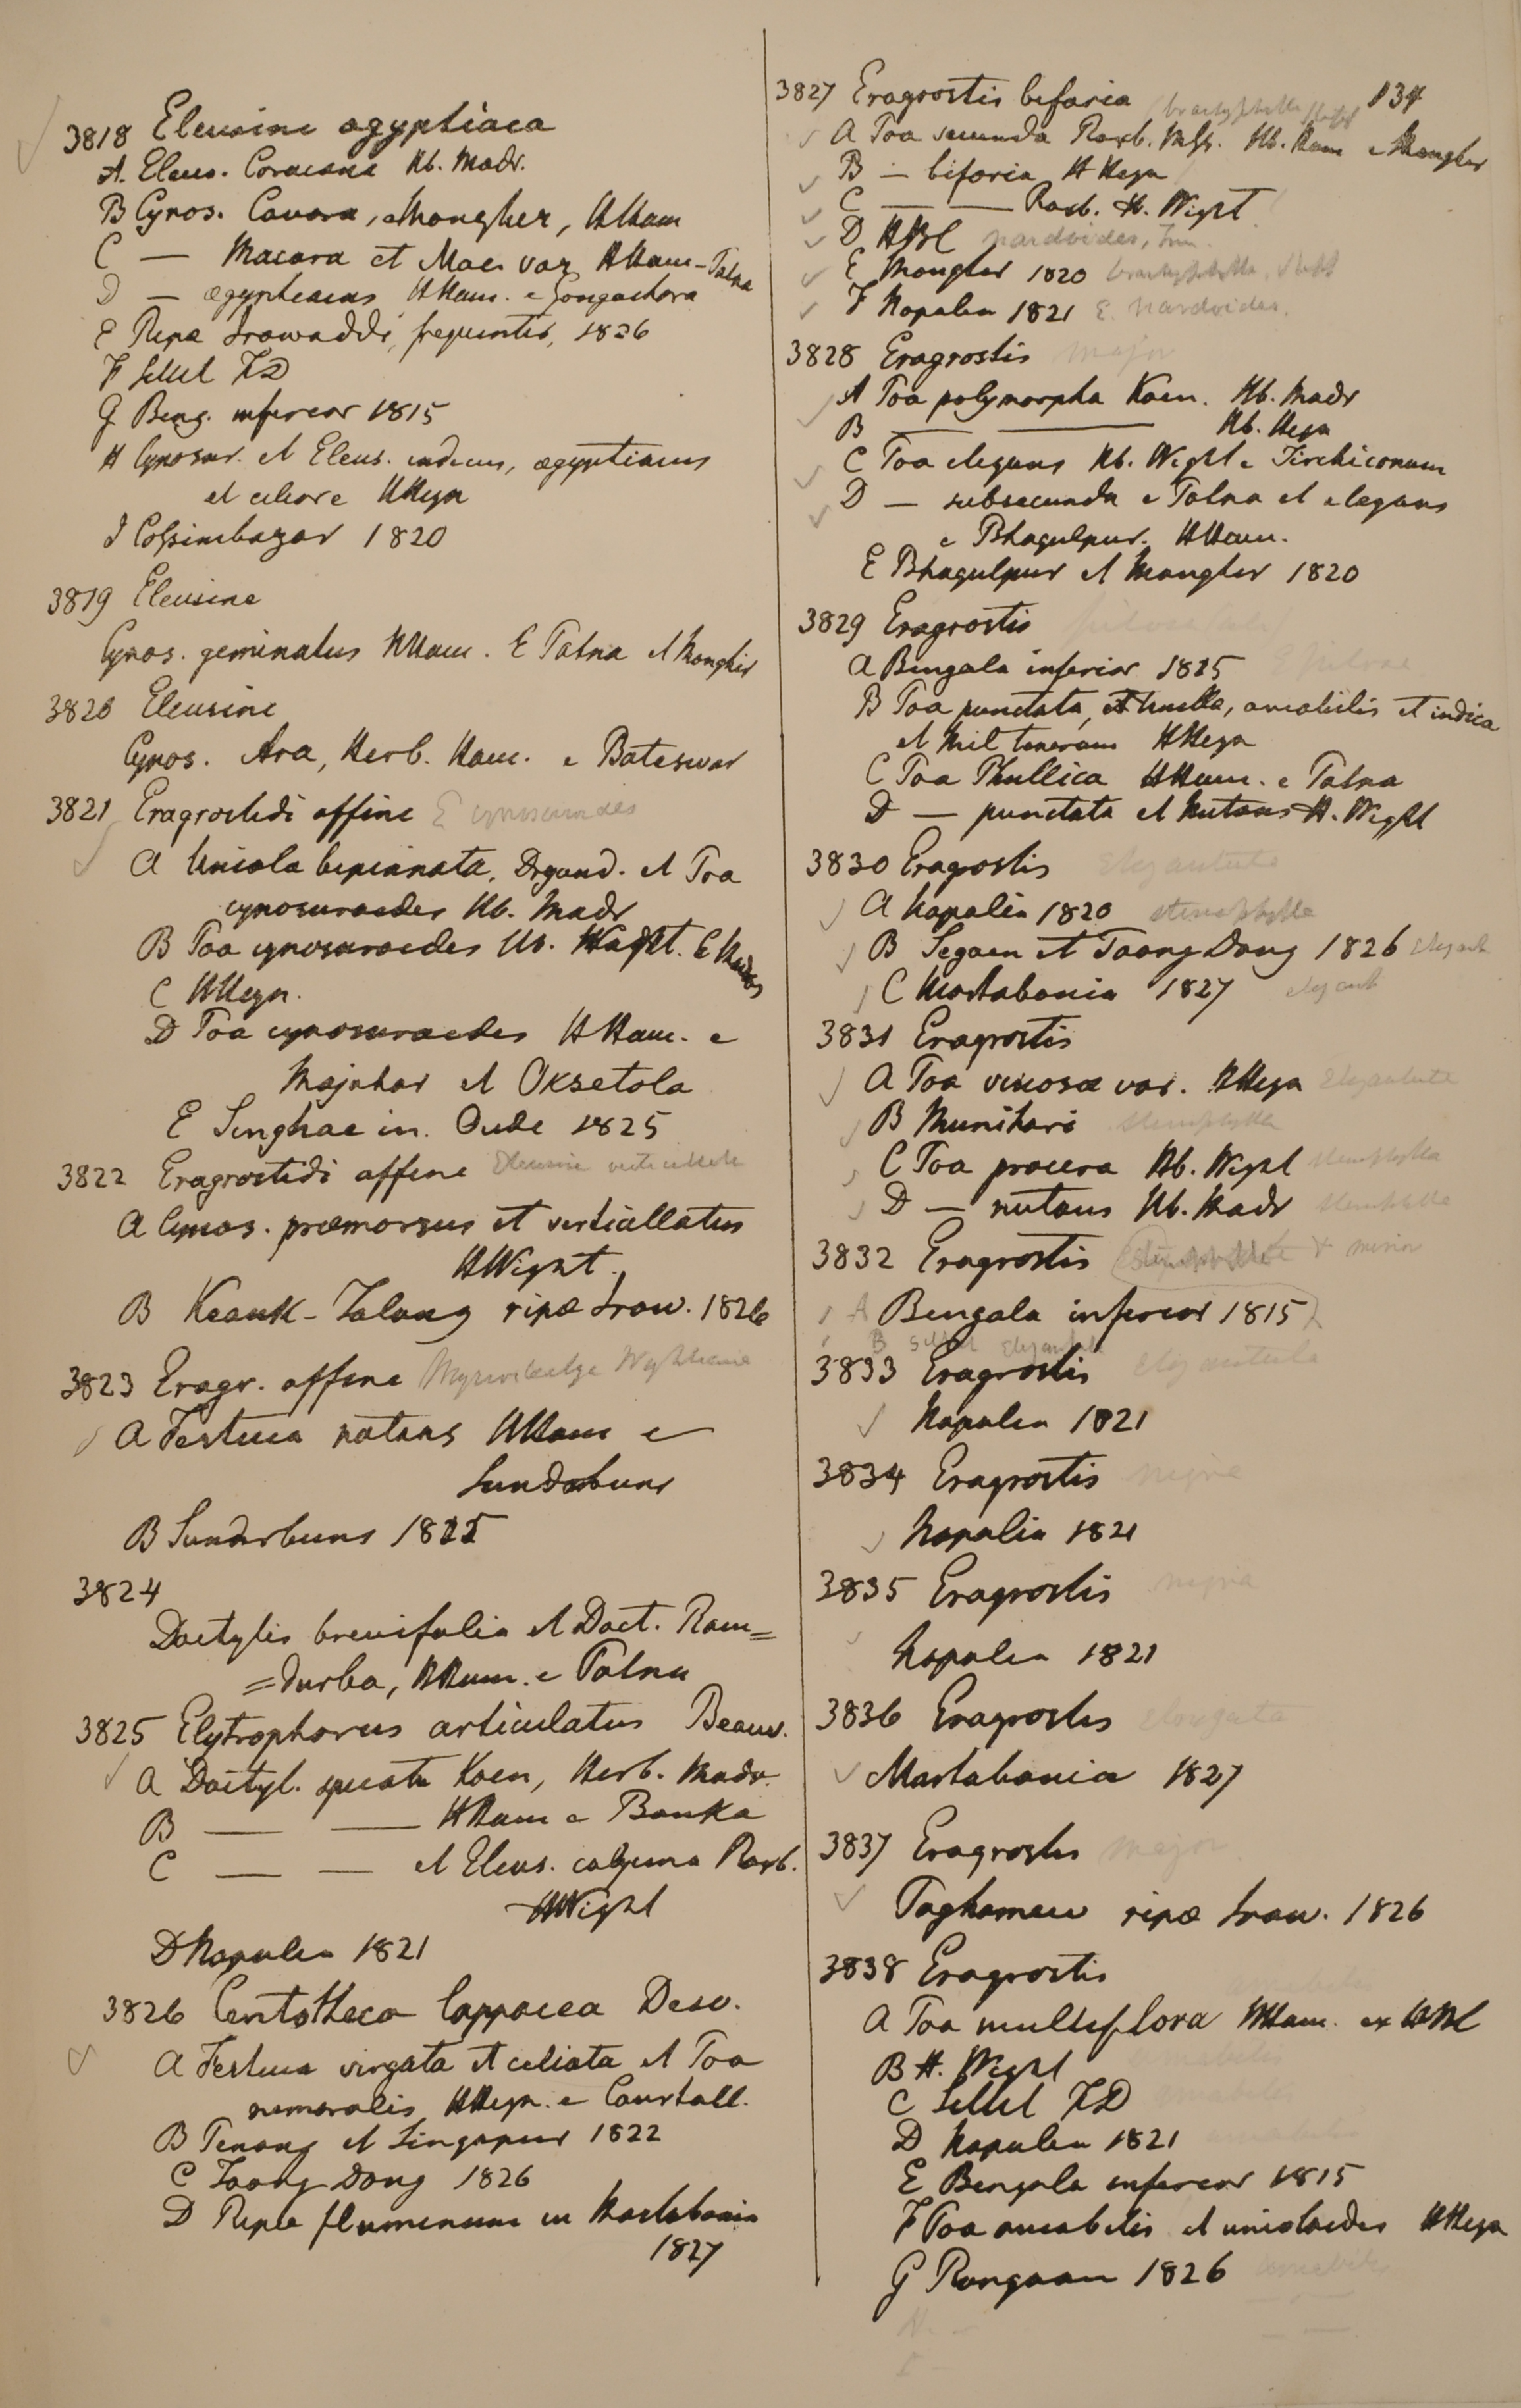 3818 Eleusine ægyptiaca
A. Eleus. Coracana Hb. Madr.
B Cynos. Cavara, Mongher, HHam
C — Macara et Mac. var HHam - Patna
D — ægyptiacus HHam. e Gongachora
E Ripa Irawaddi, frequentis, 1826
F Sillet FD
G Beng. inferior 1815
H Cynosur. et Eleus. indicus, ægyptiacus
et ciliare HHeyn
I Cossimbazar 1820
3819 Eleusine
Cynos. geminatus HHam. E Patna et Monghir
3820 Eleusine
Cynos. Ara, Herb. Ham. e Bateswar
3821 Eragrostidi affine E cynosuroides
A Uniola bipinnata, et Poa
cynosuroides Hb. Madr
B Poa cynosuroides Hb. Wight. E Madras
C HHeyn.
D Poa cynosuroides HHam. e
Majahar et Oksetola
E Singhae in. Oude 1825
3822 Eragrostidi affine Eleusine verticillata
A Cynos. præmorsus et verticillatus
HWight.
B Keauk-Talong ripæ Iraw. 1826
3823 Eragr. affine Myriostachya Wightiana
A Festuca natans HHam e
Sundabuns
B Sundrbuns 1825
3824
Dactylis brevifolia et Dact. Ram=
=durba, HHam. e Patna
3825 Elytrophorus articulatus Beauv.
A Dactyl. spicata Koen, Herb. Madr.
B — — HHam e Banka
C — — et Eleus. calycina Roxb.
HWight
D Napalia 1821
3826 Centotheca lappacea Desv.
A Festuca virgata et ciliata et Poa
nemoralis HHeyn. e Courtall.
B Penang et Singapur 1822
C Taong Dong 1826
D Ripæ fluminum in Martabania
1827
134
3827 Eragrostis bifaria brachyphylla Stapf
A Poa secunda Roxb. Mss. Hb. Ham e Mongher
B — bifaria HHeyn
C — — Roxb. H. Wight
D HBC nardoides, Trin.
E Mongher 1820 brachyphylla, Stapf
F Napalia 1821 E. nardoides.
3828 Eragrostis major
A Poa polymorpha Koen. Hb. Madr
B — — Hb. Heyn
C Poa elegans Hb. Wight e Tirchiconum
D — subsecunda e Patna et elegans
e Bhagulpur. HHam.
E Bhagulpur et Mongher 1820
3829 Eragrostis pilosa
A Bengala inferior 1825 E pilosa
B Poa punctata, et tenella, amabilis et indica
et Mil teneram HHeyn
C Poa Phullica HHam. e Patna
D — punctata et nutans H. Wight
3830 Eragostis elegantula
A Napalia 1820 stenophylla
B Segaen et Taong Dong 1826 elegant
C Martabania 1827 elegant
3831 Eragrostis
A Poa viscosæ var. HHeyn elegantula
B Munihari stenophylla
C Poa procera Hb. Wight stenophylla
D — nutans Hb. Madr stenophylla
3832 Eragrostis & minor
A Bengala inferior 1815
B Sillet elegantula
3833 Eragrostis elegantula
Napalia 1821
3834 Eragrostis nigra
Napalia 1821
3835 Eragrostis nigra
Napalia 1821
3836 Eragrostis elongata
Martabania 1827
3837 Eragrostis major
Taghamew ripæ Iraw. 1826
3838 Eragrostis amabilis
A Poa multiflora HHam. ex HBC
B H. Wight amabilis
C Sillet FD amabilis
D Napalia 1821 amabilis
E Bengala inferior 1815
F Poa amabilis et unioloides HHeyn
G Rangoon 1826 amabilis